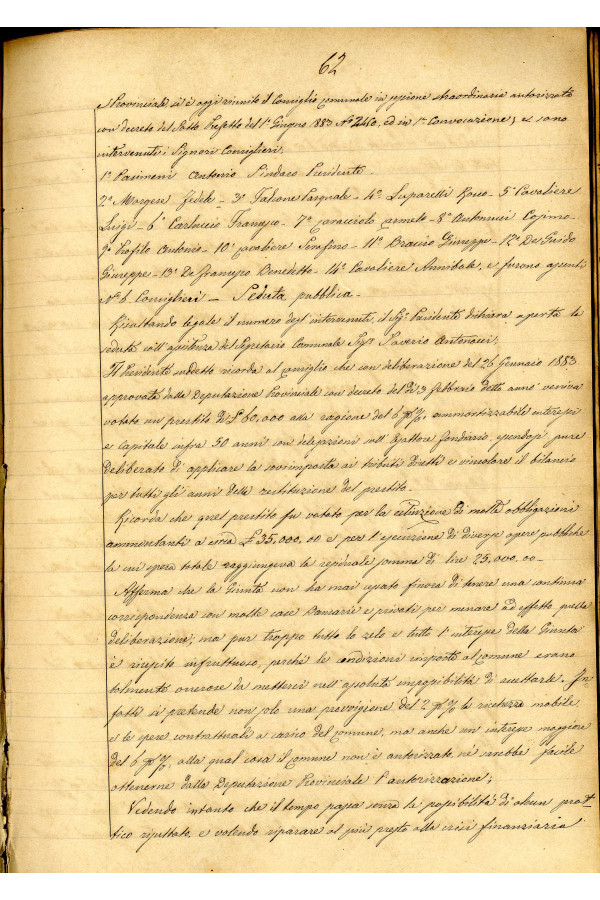 62
Provinciale si è oggi riunito il Consiglio Comunale in sessione straordinaria autorizzata
con decreto del Sotto Prefetto del 1º Giugno 1883 Nº 2460, ed in 1ª Convocazione, e sono
intervenuti i Signori Consiglieri.
1º Pasimeni Antonio Sindaco Presidente
2º Morgese Fedele - 3º Falcone Pasquale - 4º Luparelli Rosa - 5º Cavaliere
Luigi - 6º Carluccio Francesco - 7º Caracciolo Carmelo - 8º Antonucci Cosimo
9º Profilo Antonio - 10º Cavaliere Serafino - 11º Braccio Giuseppe - 12º De Guido
Giuseppe - 13º De Francesco Benedetto - 14º Cavaliere Annibale, e furono assenti
Nº 6 Consiglieri — Seduta pubblica -
Risultando legale il numero degl'intervenuti, il Sigr Presidente dichiara aperta la
seduta coll'assistenza del Segretario Comunale Sigr Saverio Antonucci;
Il Presidente suddetto ricorda al Consiglio che con deliberazione del 26 Gennaio 1883
approvata dalla Deputazione Provinciale con decreto del dì 23 Febbraio detto anno veniva
votato un prestito di £ 60,000 alla ragione del 6 p% ammortizzabile interessi
e capitale infra 50 anni con delegazioni sull'Esattore fondiario, essendosi pure
deliberato di applicare la sovrimposta ai tributi diretti e vincolare il bilancio
per tutti gli anni della restituzione del prestito.
Ricorda che quel prestito fu votato per la estinzione di molte obbligazioni
ammontanti a circa £ 35,000.00 e per l'esecuzione di diverse opere pubbliche
la cui spesa totale raggiungeva la residuale somma di lire 25,000.00 -
Afferma che la Giunta non ha mai cessato finora di tenere una continua
corrispondenza con molte case Bancarie e privati per menare ad effetto quella
deliberazione; ma pur troppo tutto lo zelo e tutto l'interesse della Giunta
è riuscito infruttuoso, perché le condizioni imposte al Comune erano
talmente onerose da metterci nell'assoluta impossibilità di accettarle. In
fatti si pretende non solo una provvigione del 2 p% la ricchezza mobile
e le spese contrattuali a carico del Comune, ma anche un interesse maggiore
del 6 p%, alla qual cosa il Comune non è autorizzato, né sarebbe facile
ottenerne dalla Deputazione Provinciale l'autorizzazione;
Vedendo intanto che il tempo passa senza la possibilità di alcun prat-
tico risultato, e volendo riparare al più presto alla crisi finanziaria